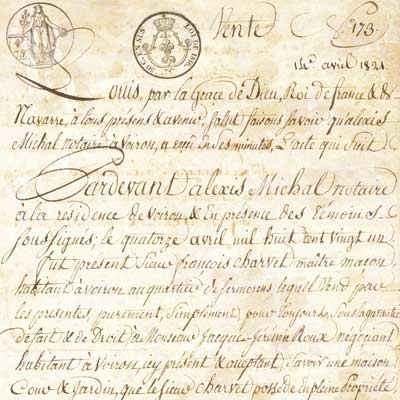 Vente
N.° 173.
14 avril 1821.
50 CEN SUS
LOI DE 1816
Louis, par la Grace de Dieu, Roi de france & de
Navarre, à tous présens & avenir, Salut faisons savoir qu'alexis
Michal notaire à Voiron, a reçu En des minutes, L'acte qui Suit
Pardevant alexis Michal notaire
à la residence de Voiron, & En presence des Témoins
soussignés; le quatorze avril mil huit cent vingt un
fut present Sieur françois charvet maître maçon,
habitant à voiron au quartier de sermorens lequel Vend par
les presentes purement, Simplement pour toujours, Sous garantie
de fait & de Droit à Monsieur Jacques-Jérémie Roux négociant
habitant à Voiron, icy présent & acceptant Savoir une maison
Cour & Jardin, que le sieur charvet possede En pleine Propriété,